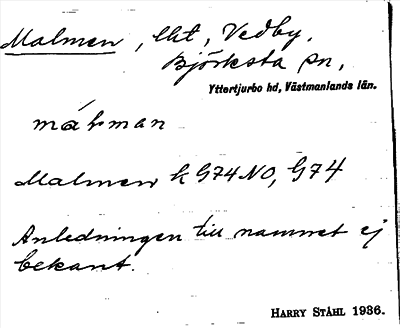 Malmen, lht, Vedby.
Björksta sn,
Yttertjurbo hd, Västmanlands län.
málman
Malmen k G74NO, G74
Anledningen till namnet ej
bekant.
HARRY STÅHL 1936.